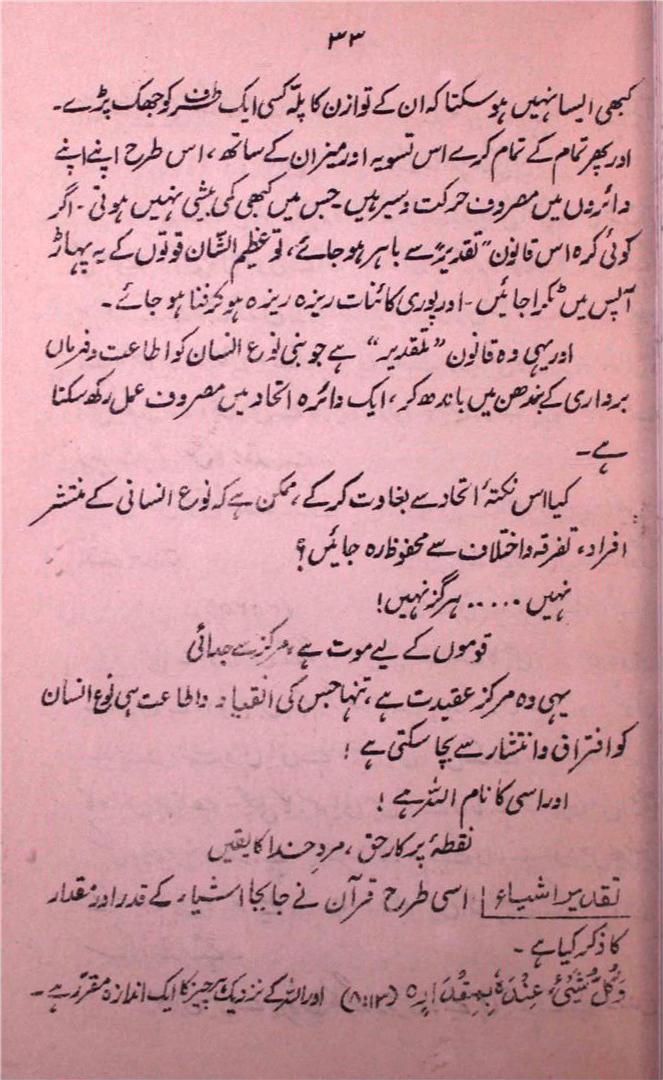 ۳۳
کبھی ایسا نہیں ہو سکتا کہ ان کے توازن کا پلّہ کسی ایک طرف کو جھک پڑے۔
اور پھر تمام کے تمام کرے اس تسویہ اور میزان کے ساتھ، اس طرح اپنے اپنے
دائروں میں مصروف حرکت و سیر ہیں۔ جس میں کبھی کمی بیشی نہیں ہوتی۔ اگر
کوئی کرہ اس قانون ”تقدیر“ سے باہر ہو جائے، تو عظیم الشّان قوتوں کے یہ پہاڑ
آپس میں ٹکرا جائیں۔ اور پوری کائنات ریزہ ریزہ ہو کر فنا ہو جائے۔
اور یہی وہ قانون ”تقدیر“ ہے جو بنی نوع انسان کو اطاعت و فرماں
برداری کے بندھن میں باندھ کر، ایک دائرہ اتحاد میں مصروف عمل رکھ سکتا
ہے۔
کیا اس نکتۂ اتحاد سے بغاوت کر کے، ممکن ہے کہ نوع انسانی کے منتشر
افراد، تفرقہ و اختلاف سے محفوظ رہ جائیں؟
نہیں ..... ہرگز نہیں!
قوموں کے لیے موت ہے، مرکز سے جدائی
یہی وہ مرکز عقیدت ہے، تنہا جس کی انقیاد و اطاعت ہی نوع انسان
کو افتراق و انتشار سے بچا سکتی ہے!
اور اسی کا نام اللہ ہے!
نقطۂ پرکار حق، مردِ خدا کا یقیں
تقدیر اشیاء اسی طرح قرآن نے جا بجا اشیاء کے قدر اور مقدار
کا ذکر کیا ہے۔
وَكُلُّ شَيْئٍ عِنْدَهٗ بِمِقْدَارٍ ہ (۸:۱۳) اور اللہ کے نزدیک ہر چیز کا ایک اندازہ مقرر ہے۔